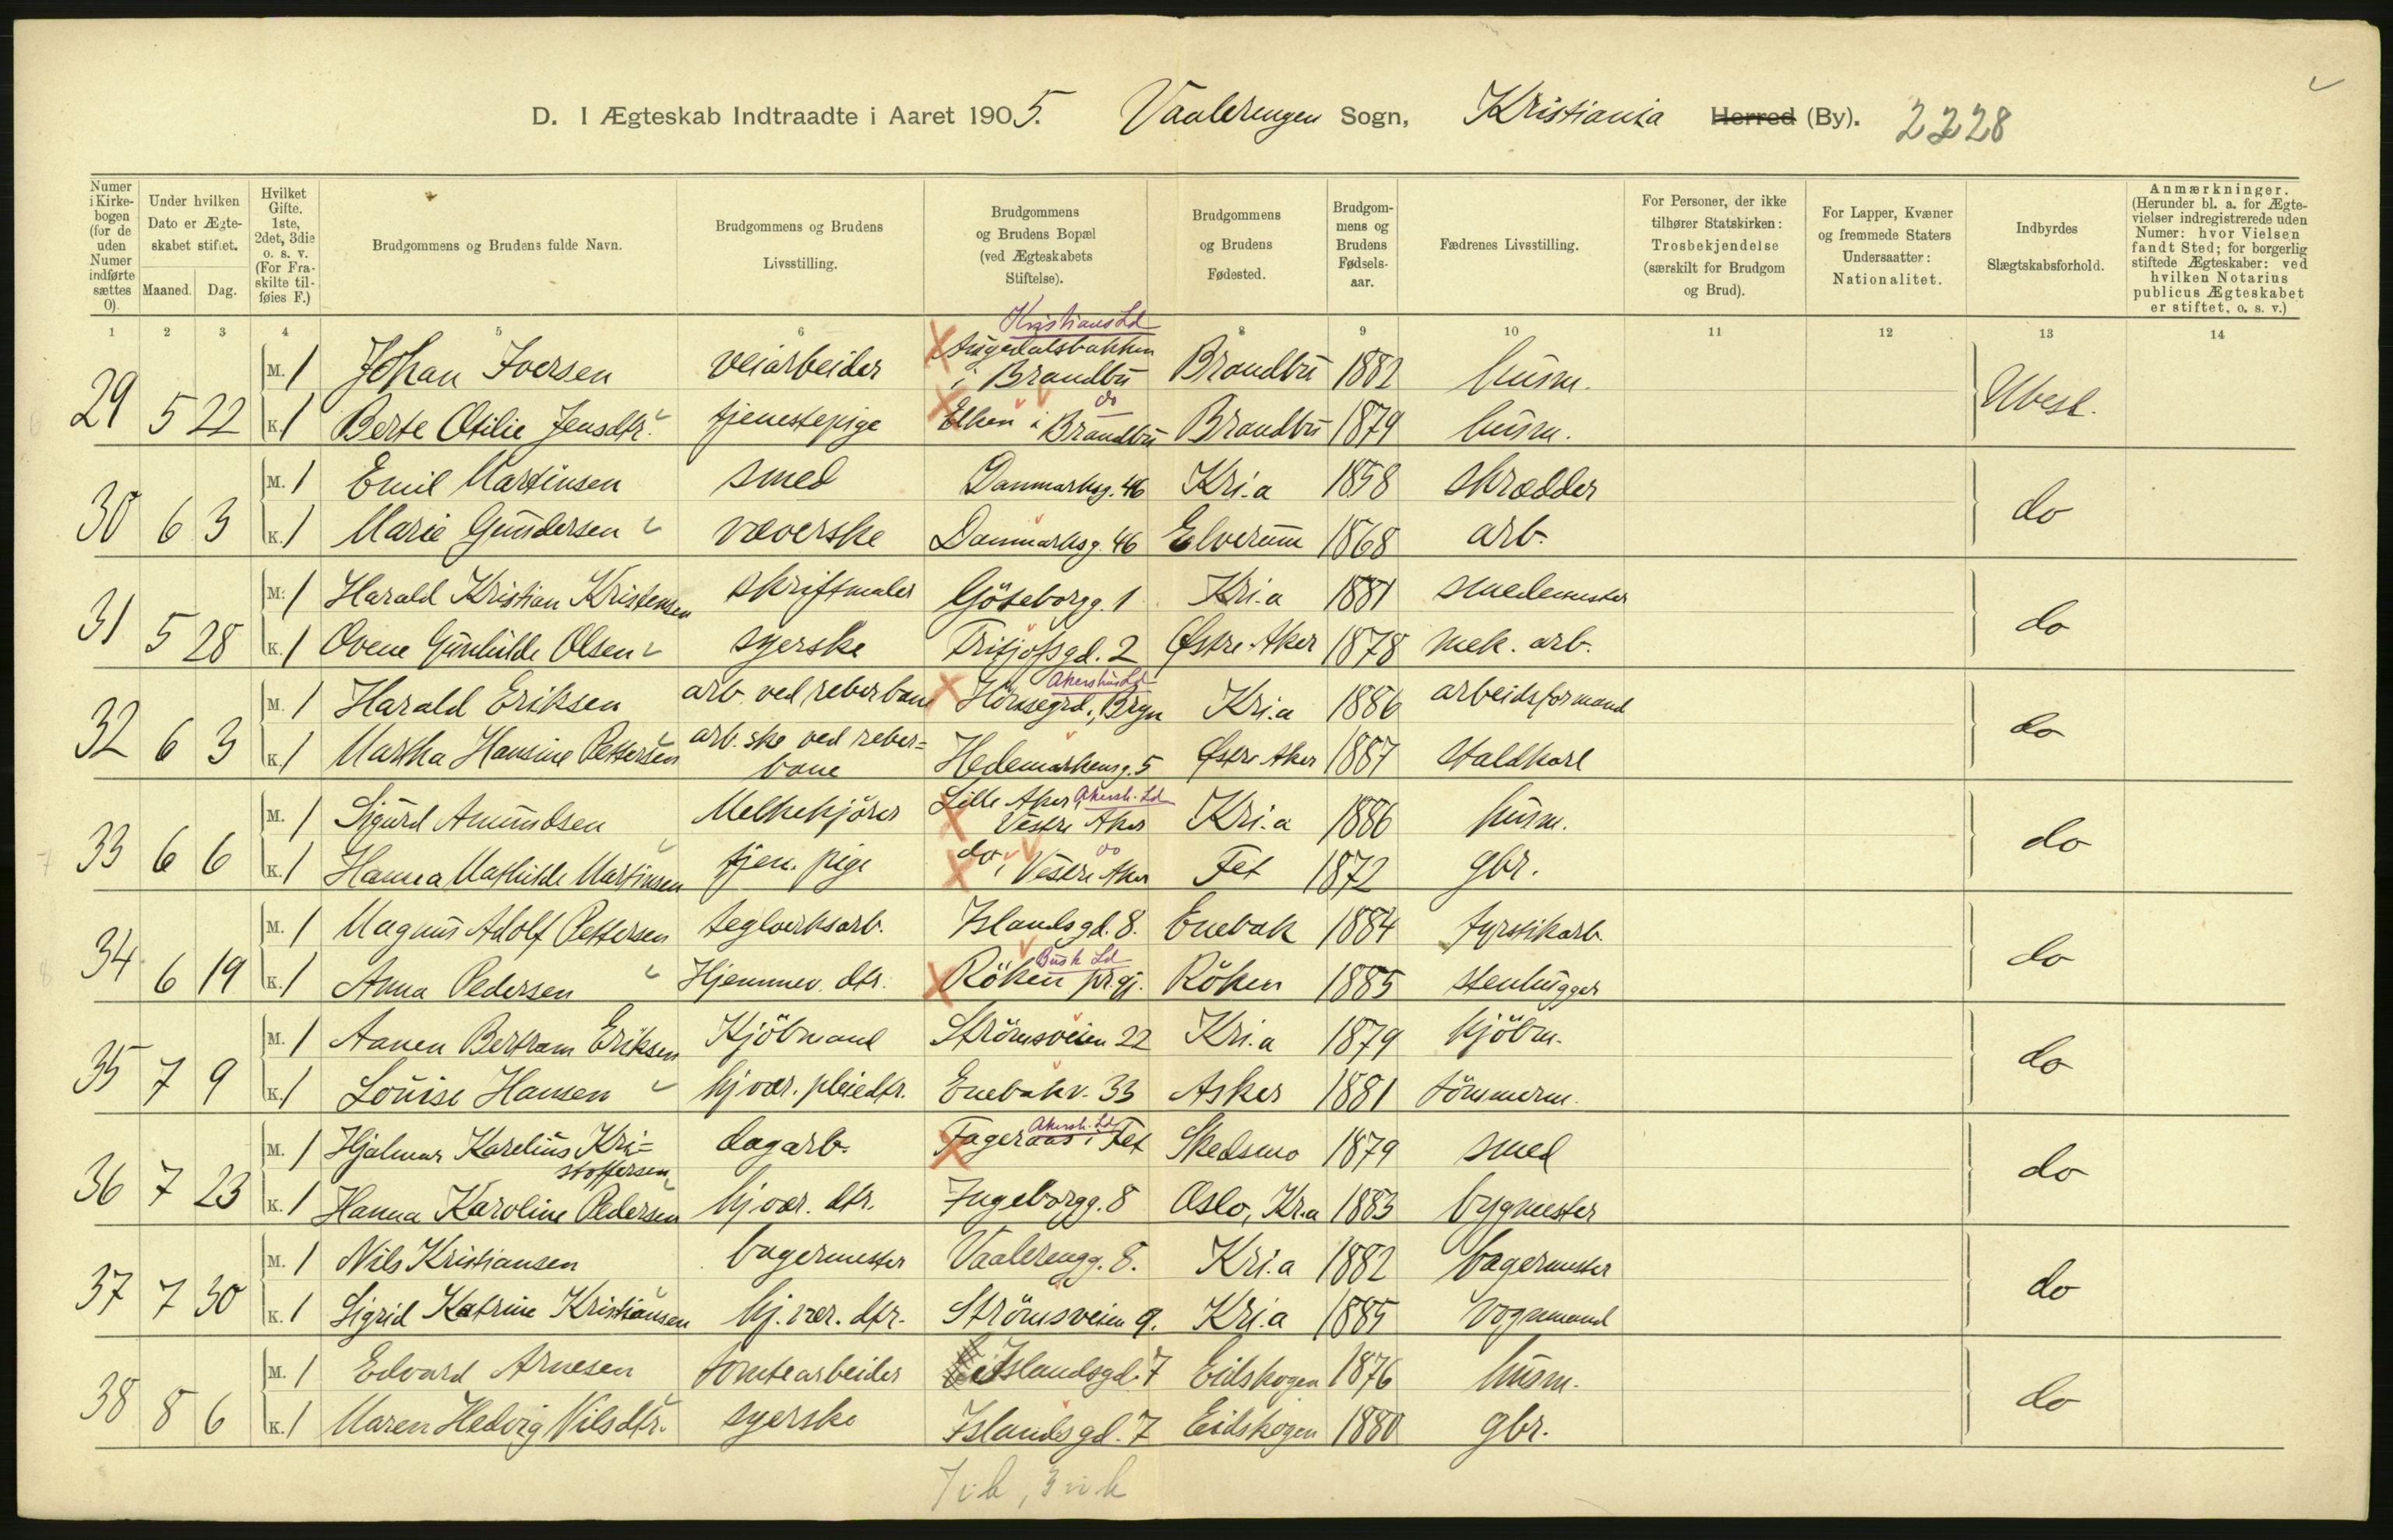 D. I Ægteskab Indtraadte i Aaret 1905. Vaalerengen Sogn, Kristiania Herred (By). 2228
Numer i Kirkebogen (for de uden Numer indførte sættes 0).
Under hvilken Dato er Ægteskabet stiftet.
Maaned. Dag.
Hvilket Gifte. 1ste, 2det, 3die o. s. v. (For Fraskilte tilføies F.)
Brudgommens og Brudens fulde Navn.
Brudgommens og Brudens Livsstilling.
Brudgommens og Brudens Bopæl (ved Ægteskabets Stiftelse).
Brudgommens og Brudens Fødested.
Brudgommens og Brudens Fødselsaar.
Fædrenes Livsstilling.
For Personer, der ikke tilhører Statskirken: Trosbekjendelse (særskilt for Brudgom og Brud).
For Lapper, Kvæner og fremmede Staters Undersaatter: Nationalitet.
Indbyrdes Slægtskabsforhold.
Anmærkninger. (Herunder bl. a. for Ægtevielser indregistrerede uden Numer: hvor Vielsen fandt Sted; for borgerlig stiftede Ægteskaber: ved hvilken Notarius publicus Ægteskabet er stiftet, o. s. v.)
1 2 3 4 5 6 8 9 10 11 12 13 14
Kristians Ld
M. 1 Johan Iversen veiarbeider i Brandbu Brandbu 1882 husm.
29 5 22 Ubesl.
K. 1 Berte Otilie Jensdtr. tjenestepige Elken i Brandbu do Brandbu 1879 husm.
M. 1 Emil Martinsen smed Danmarksg. 46 Kri.a 1858 skrædder
30 6 3 do
K. 1 Marie Gundersen væverske Danmarksg. 46 Elverum 1868 arb.
M. 1 Harald Kristian Kristensen skriftmaler Göteborgg. 1 Kri.a 1881 smedemester
31 5 28 do
K. 1 Ovene Gunhilde Olsen syerske Fritjofsgd. 2 Østre Aker 1878 mek. arb.
M. 1 Harald Eriksen arb. ved reberbane Akershus Ld Bryn Kri.a 1886 arbeidsformand
32 6 3 do
K. 1 Martha Hansine Pettersen arb.ske ved reberbane Hedemarkensg. 5 Østre Aker 1887 staldkarl
M. 1 Sigurd Amundsen Melkekjører Lille Aker, Akersh. Ld Vestre Aker Kri.a 1886 husm.
33 6 6 do
K. 1 Hanna Mathilde Martinsen tjen. pige do, Vestre Aker do Fet 1872 gbr.
M. 1 Magnus Adolf Pettersen teglverksarb. Islandsgd. 8. Enebak 1884 fyrstikarb.
34 6 19 do
K. 1 Anna Pedersen Hjemmev. dtr. Röken prgj. Busk Ld Röken 1885 stenhugger
M. 1 Aanen Bertram Eriksen Kjöbmand Strömsveien 22 Kri.a 1879 kjöbm.
35 7 9 do
K. 1 Louise Hansen hjvær. pleiedtr. Enebakv. 33 Asker 1881 tömmerm.
M. 1 Hjalmar Karelius Kristoffersen dagarb. Fageraas i Fet Akersh. Ld Skedsmo 1879 smed
36 7 23 do
K. 1 Hanna Karoline Pedersen hjvær. dtr. Ingeborgg. 8 Oslo, Kr.a 1883 bygmester
M. 1 Nils Kristiansen bagermester Vaalerengg. 8. Kri.a 1882 bagermester
37 7 30 do
K. 1 Sigrid Katrine Kristiansen hj. vær. dtr. Strömsveien 9. Kri.a 1885 vognmand
M. 1 Edvard Arnesen tomtearbeider Islandsgd. 7 Eidskogen 1876 husm.
38 8 6 do
K. 1 Maren Hedvig Nilsdtr. syerske Islandsgd. 7 Eidskogen 1880 gbr.